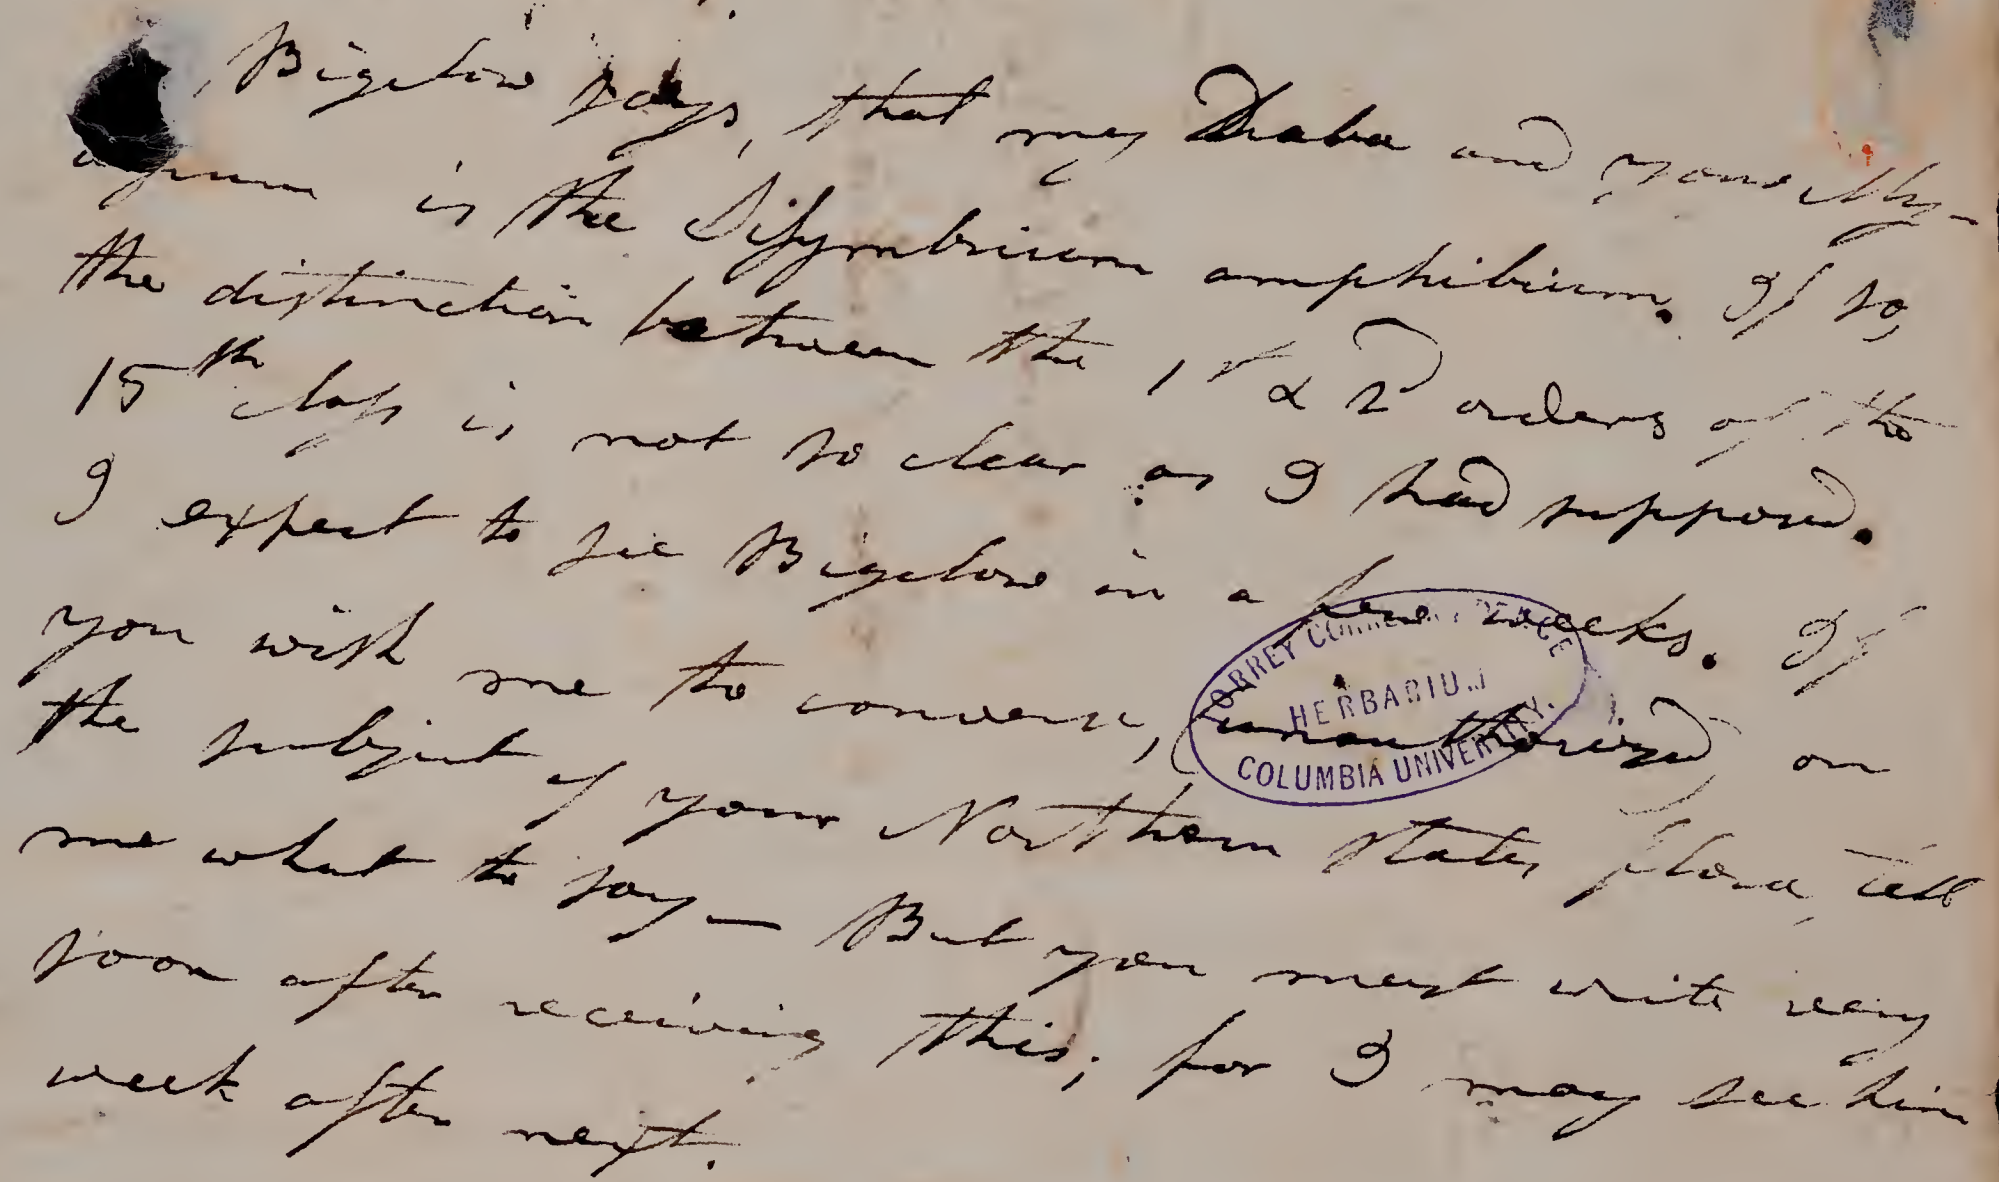 Bigelow says, that my Draba and your My-
agrum is the Sisymbrium amphibium. If so,
the distinction between the 1st & 2d orders of the
15th class is not so clear as I had supposed.
I expect to see Bigelow in a few weeks. If
you wish me to converse, (unauthorized) on
the subject of your Northern States flora, tell
me what to say — But you must write very
soon after receiving this; for I may see him
week after next.
TORREY CORRESPONDENCE
HERBARIUM
COLUMBIA UNIVERSITY.